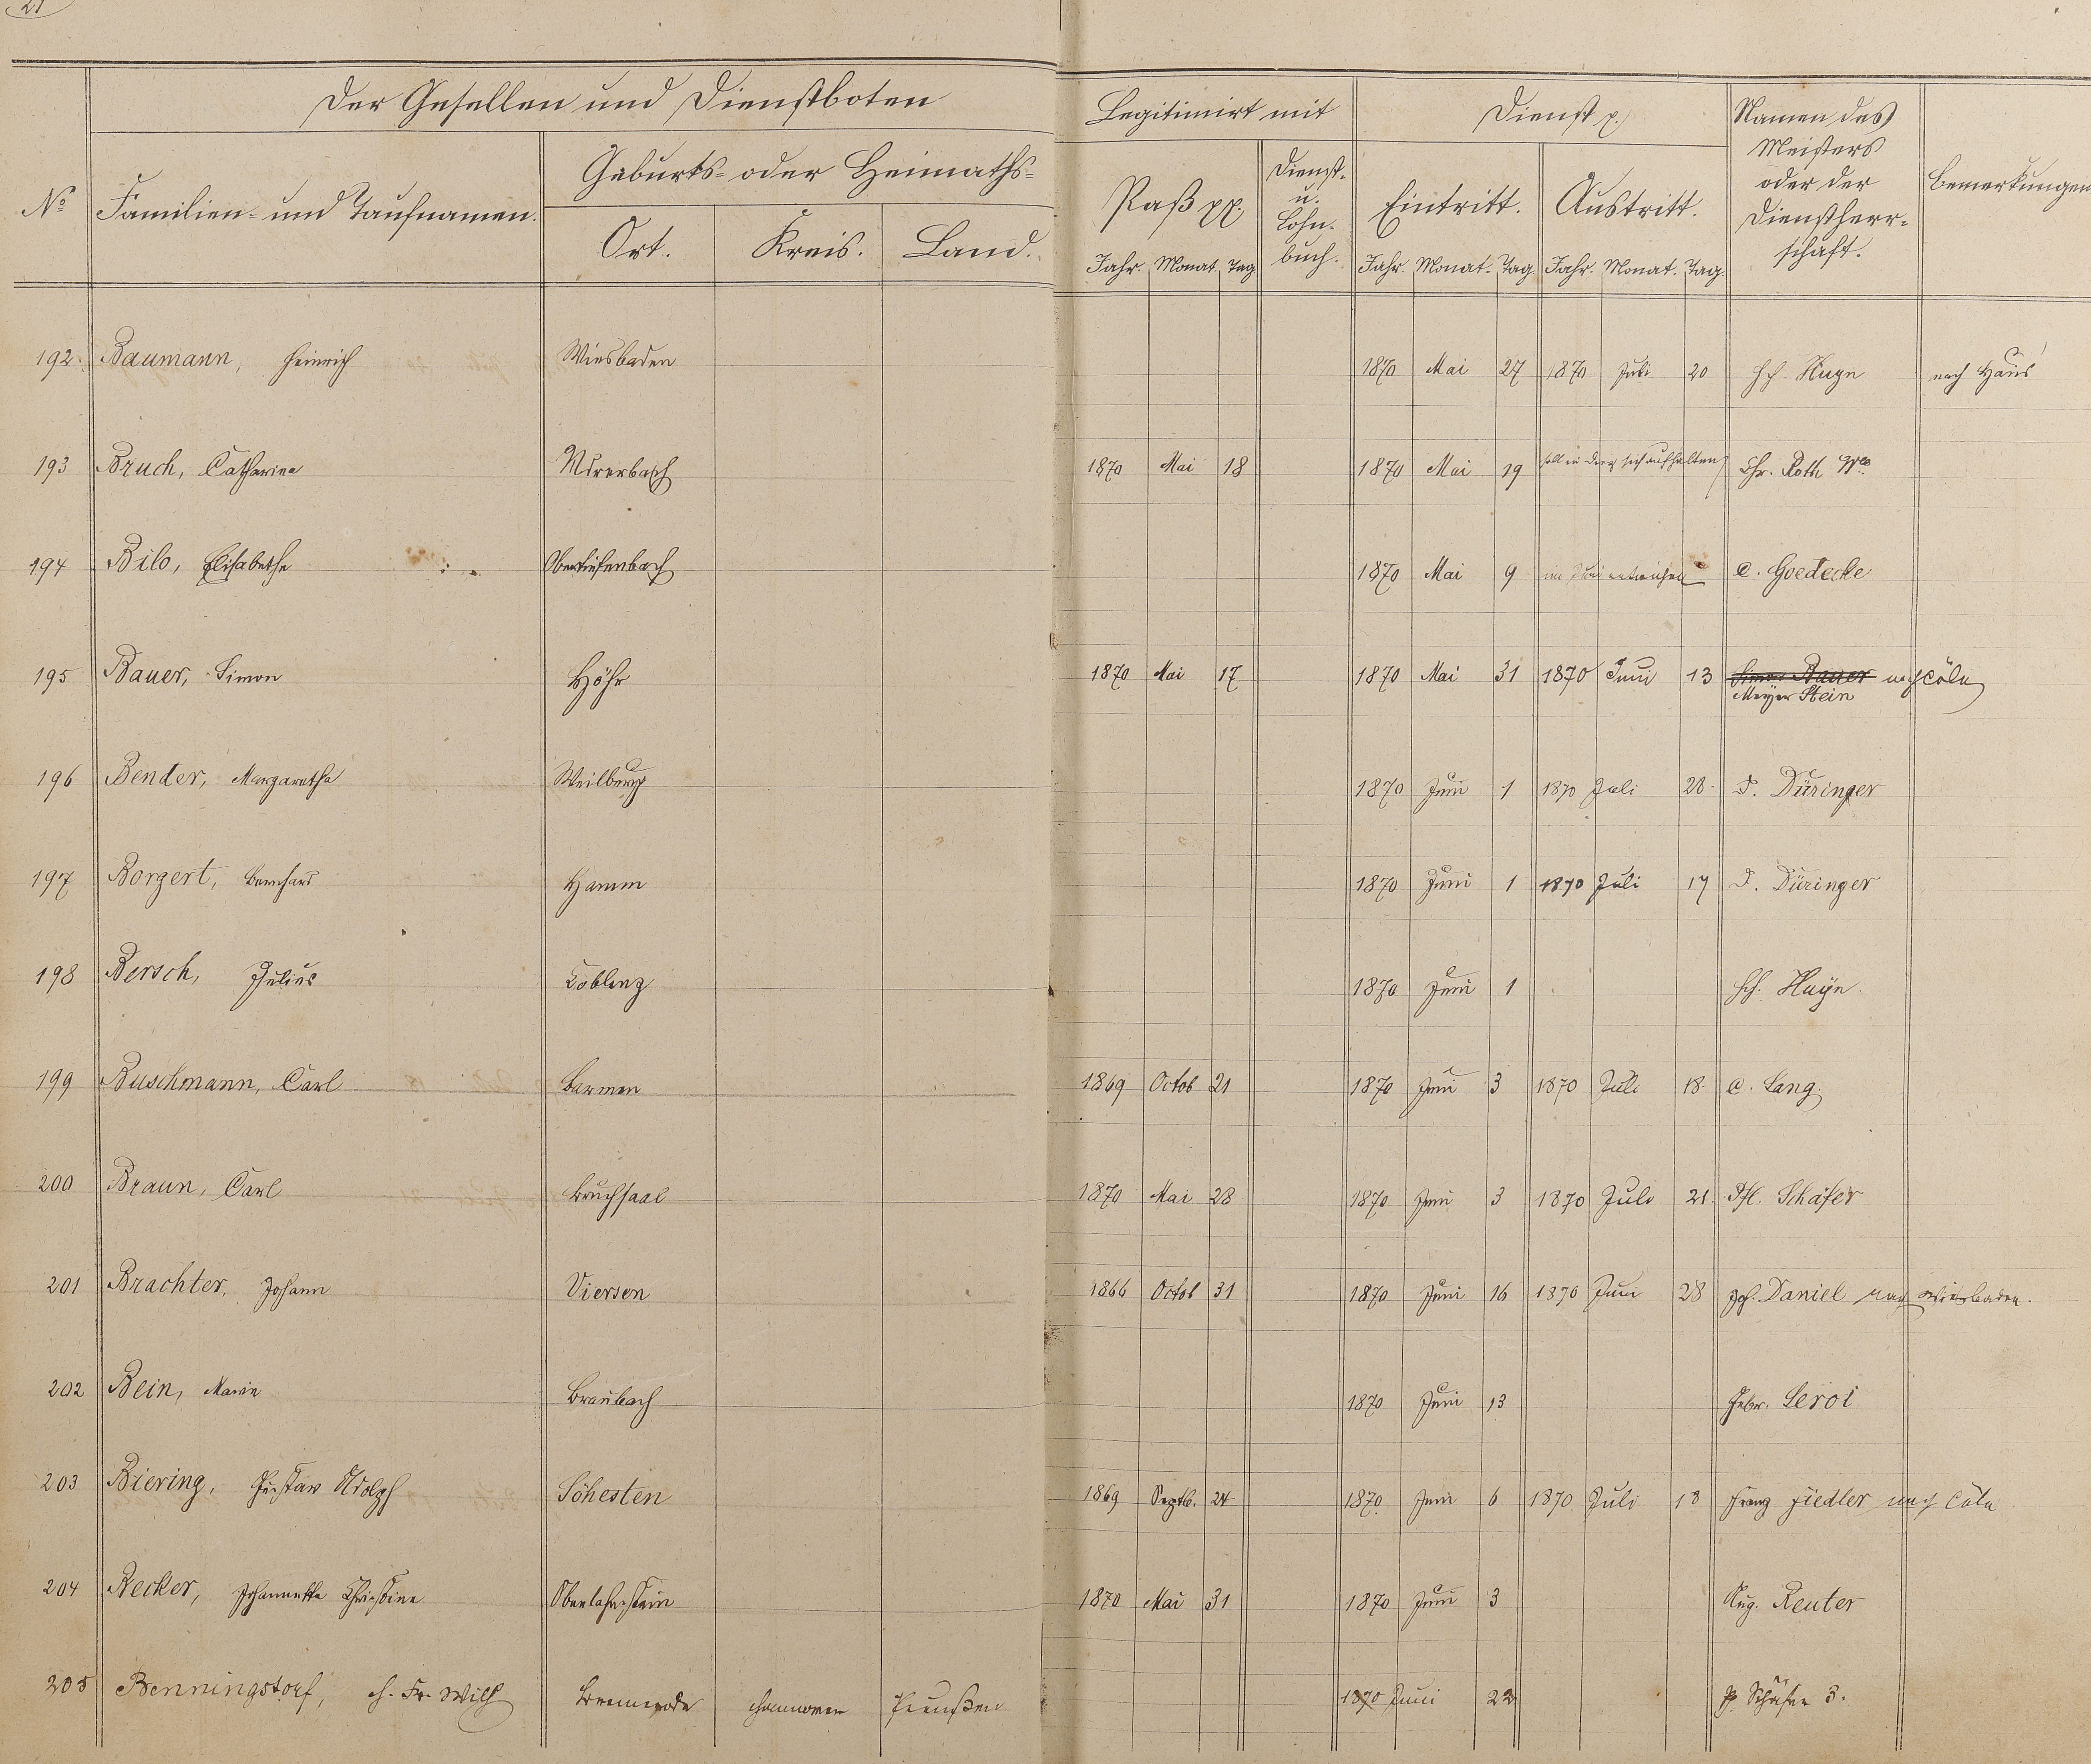 21
Der Gesellen und Dienstboten
Legitimirt mit
Dienst p.
Namen des
Meisters
oder der
Dienstherr-
schaft.
Bemerkungen
No
Familien- und Taufnamen.
Geburts- oder Heimaths-
Ort. Kreis. Land.
Paß pp.
Dienst-
u.
Lohn-
buch.
Eintritt. Austritt.
Jahr. Monat. Tag Jahr. Monat. Tag. Jahr. Monat. Tag.
192. Baumann, Heinrich Wiesbaden 1870 Mai 27 1870 Juli 20 Hch. Huyn nach Haus
193 Bruch, Catharine 1870 Mai 18 1870 Mai 19 soll in sich aufhalten Chr. Roth We
194 Bilo, Elisabethe Obertiefenbach 1870 Mai 9 im Juni entwichen C. Goedecke
195 Bauer, Simon Höhr 1870 Mai 17 1870 Mai 31 1870 Juni 13 Simon Bauer nach Cöln
Meyer Stein
196 Bender, Margarethe Weilburg 1870 Juni 1 1870 Juli 28. D. Düringer
197 Borgert, Bernhard Hamm 1870 Juni 1 1870 Juli 17 D. Düringer
198 Bersch, Julius Coblenz 1870 Juni 1 Hch. Huyn.
199 Buschmann, Carl Barmen 1869 Octob 21 1870 Juni 3 1870 Juli 18 C. Lang.
200 Braun, Carl Bruchsaal 1870 Mai 28 1870 Juni 3 1870 Juli 21. Schäfer
201 Brachter, Johann Viersen 1866 Octob 31 1870 Juni 16 1870 Juni 28 Jos. Daniel nach Wiesbaden.
202 Bein, Marie Braubach 1870 Juni 13 Gebr. Leroi
203 Biering, Gustav Adolph Söhesten 1869 Septb. 24 1870 Juni 6 1870 Juli 18 Franz Fiedler nach Cöln
204 Becker, Johannette Christine Oberlahnstein 1870 Mai 31 1870 Juni 3 Aug. Reuter
205 Benningstorf, H. Fr. Wilh Bremerode Hannover Preußen 1870 Juni 22 P. Schäfer 3.